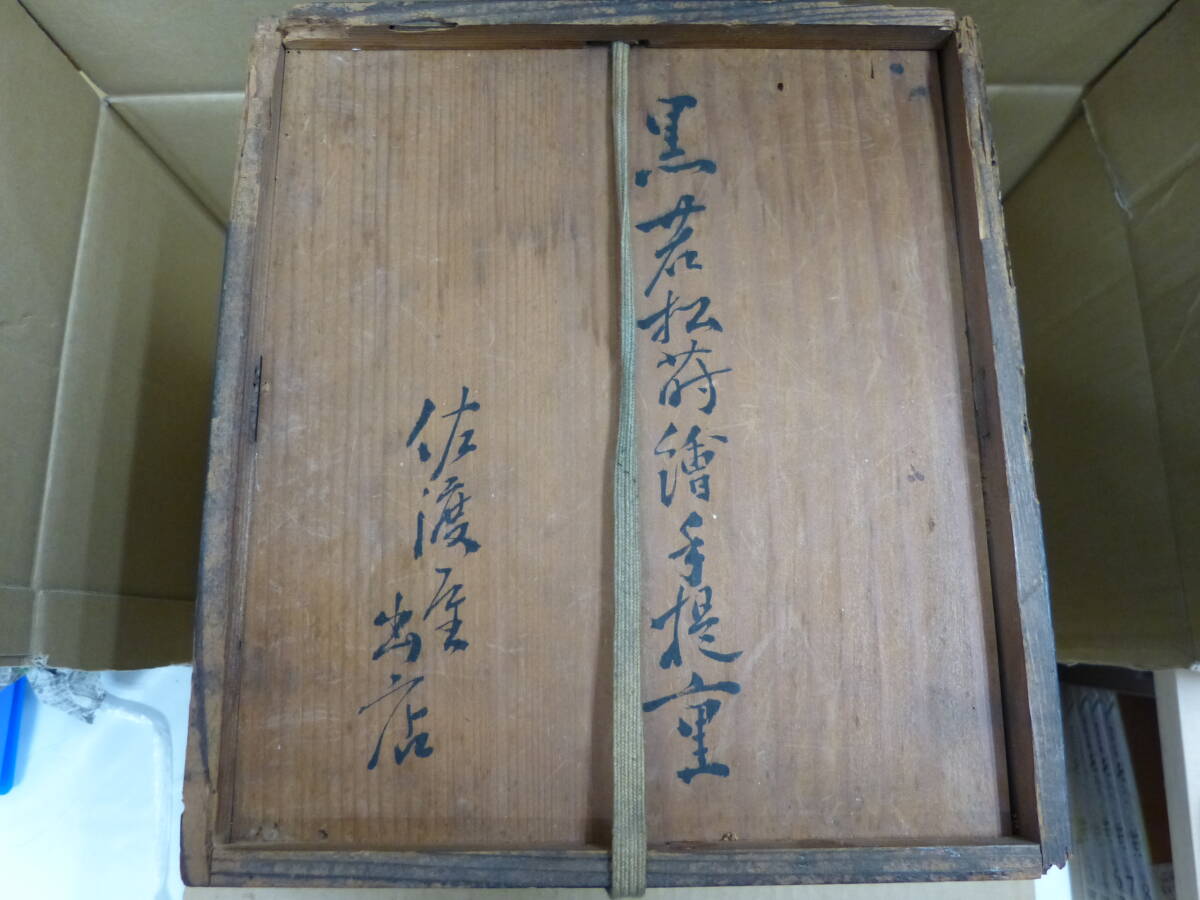 黒若松蒔繪手提重
佐渡屋
出店